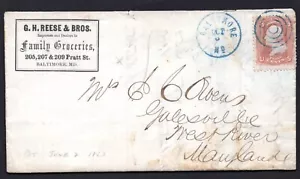 G. H. REESE & BROS.
Importers and Dealers in
Family Groceries,
205, 207 & 209 Pratt St.
BALTIMORE, MD.
BALTIMORE
OCT
MD
Mrs. E C Owens
Galesville
West River
Maryland